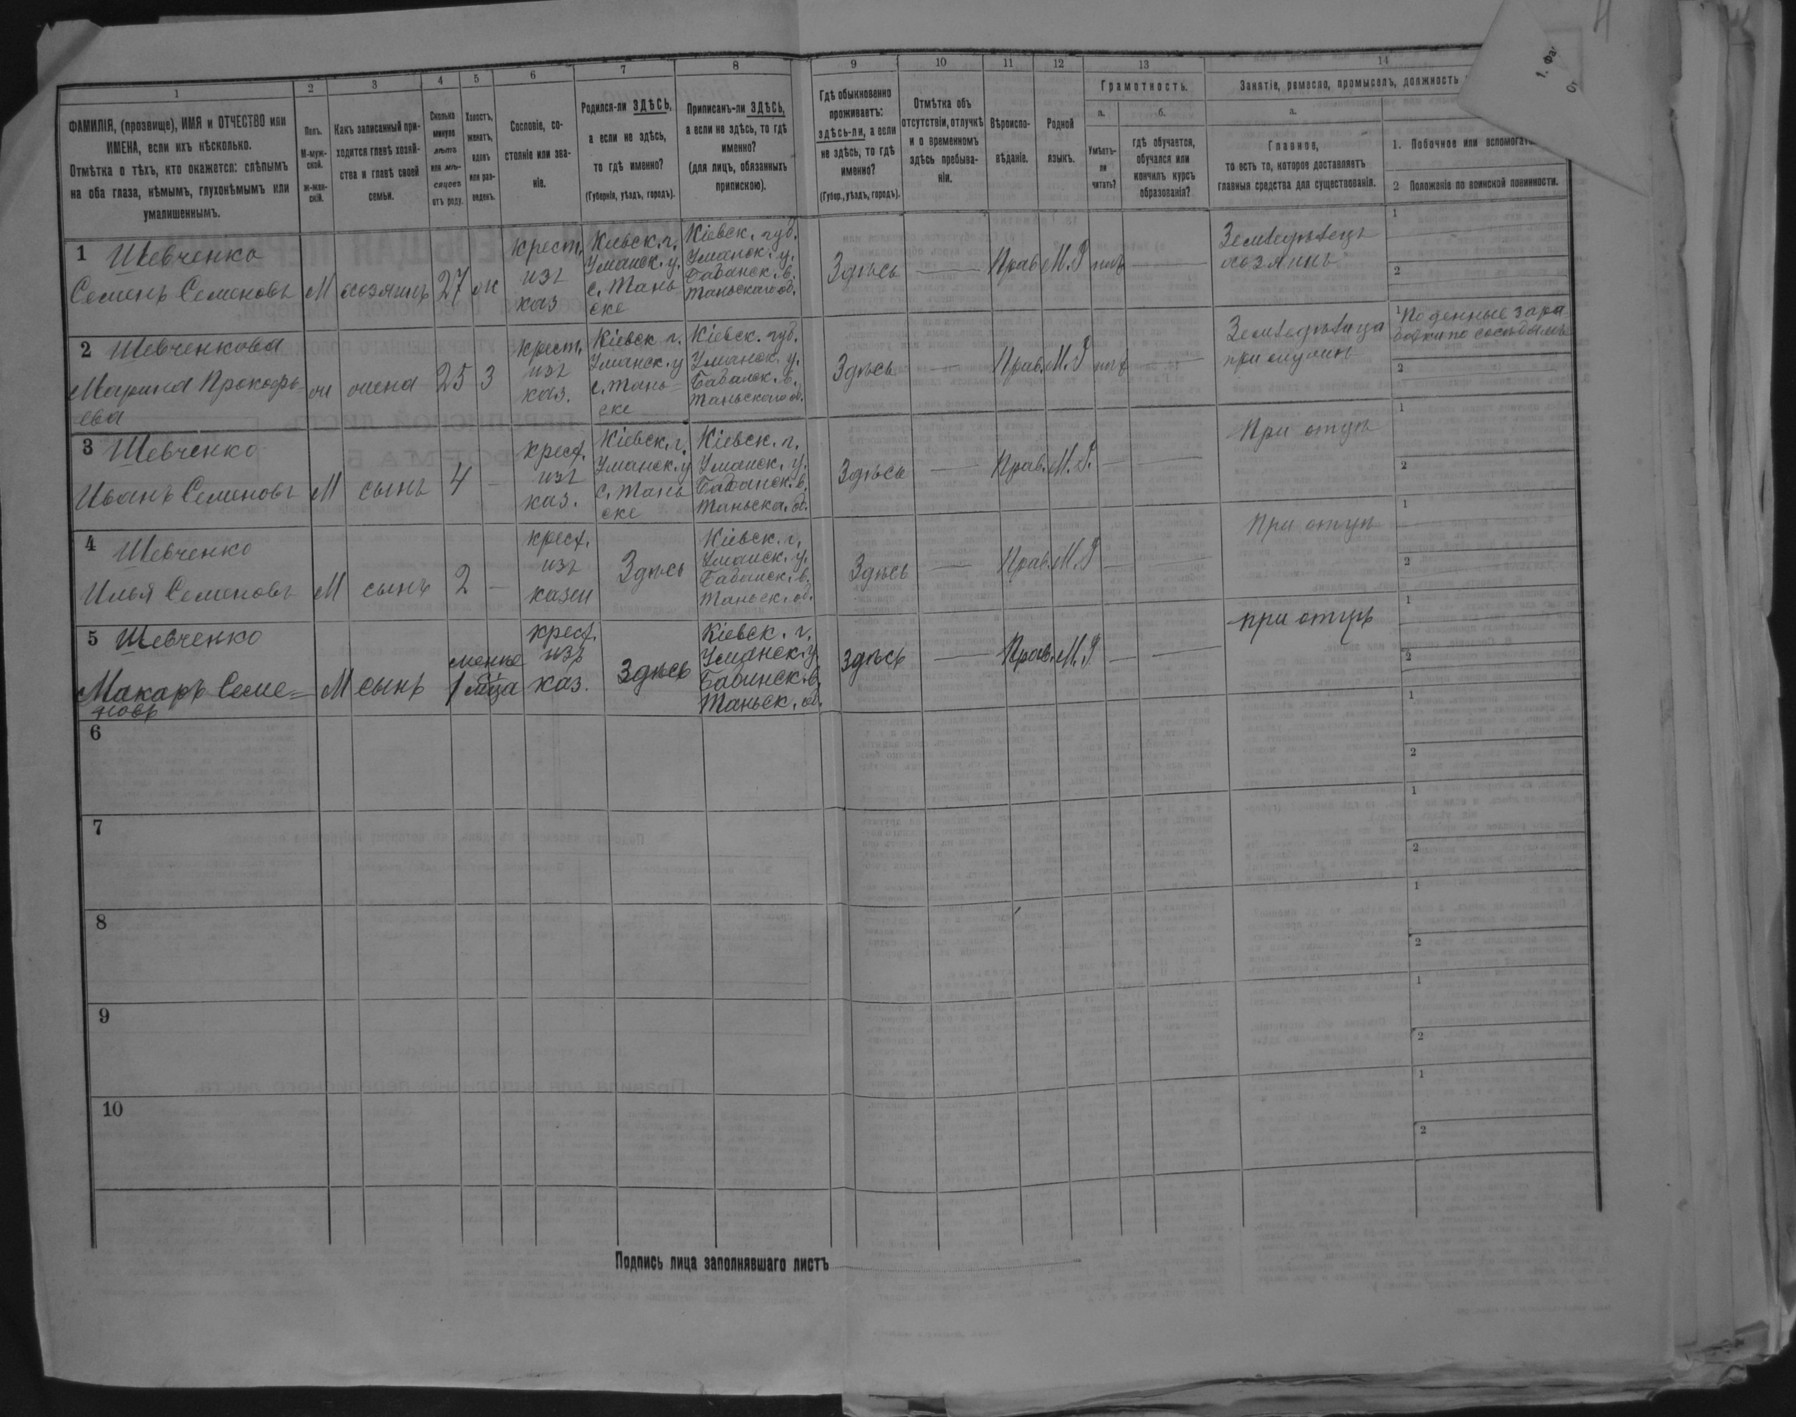 1
2
3
4
5
6
7
8
9
10
11
12
13
14
ФАМИЛІЯ, (прозвище), ИМЯ и ОТЧЕСТВО или
ИМЕНА, если ихъ нѣсколько.
Отмѣтка о тѣхъ, кто окажется: слѣпымъ
на оба глаза, нѣмымъ, глухонѣмымъ или
умалишеннымъ.
Полъ.
М-муж-
ской.
Ж-жен-
скій.
Какъ записанный при-
ходится главѣ хозяй-
ства и главѣ своей
семьи.
Сколько
минуло
лѣтъ
или мѣ-
сяцевъ
отъ роду.
Холостъ,
женатъ,
вдовъ
или раз-
веденъ.
Сословіе, со-
стояніе или зва-
ніе.
Родился-ли ЗДѢСЬ,
а если не здѣсь,
то гдѣ именно?
(Губернія, уѣздъ, городъ).
Приписанъ-ли ЗДѢСЬ,
а если не здѣсь, то гдѣ
именно?
(для лицъ, обязанныхъ
припискою).
Гдѣ обыкновенно
проживаетъ:
здѣсь-ли, а если
не здѣсь, то гдѣ
именно?
(Губер., уѣздъ, городъ).
Отмѣтка объ
отсутствіи, отлучкѣ
и о временномъ
здѣсь пребыва-
ніи.
Вѣроиспо-
вѣданіе.
Родной
языкъ.
Грамотность.
а.
Умѣетъ-
ли
читать?
б.
гдѣ обучается,
обучался или
кончилъ курсъ
образованія?
Занятіе, ремесло, промыселъ, должность
а.
Главное,
то есть то, которое доставляетъ
главныя средства для существованія.
1. Побочное или вспомогат
2 Положеніе по воинской повинности.
1 Шевченко
Семенъ Семеновъ
М
хозяинъ
27
ж
крест.
изъ
каз
Кіевск. г.
Уманск. у.
с. Тань
ске
Кіевск. губ.
Уманск. у.
Бабанск. в.
Таньскаго об.
Здѣсь
Прав.
М. Р
Земледѣлецъ
хозяинъ
1
2
2 Шевченкова
Марина Прокофь
ева
ж
жена
25
З
крест.
изъ
каз.
Кіевск. г.
Уманск. у
с. Тань
ске
Кіевск. губ.
Уманск. у.
Бабанск. в.
Таньскаго об.
Здѣсь
Прав.
М. Р
при мужѣ
1 Поденные зара
ботки по сосѣдямъ
2
3 Шевченко
Иванъ Семеновъ
М
сынъ
4
крест.
изъ
каз.
Кіевск. г.
Уманск. у
с. Тань
ске
Кіевск. г.
Уманск. у.
Бабанск. в.
Таньска. об.
Здѣсь
Прав.
М. Р.
При отцѣ
1
2
4 Шевченко
Илья Семеновъ
М
сынъ
2
крест.
изъ
казен
Здѣсь
Кіевск. г.
Уманск. у.
Бабанск. в.
Таньск. об.
Здѣсь
Прав.
М. Р
При отцѣ
1
2
5 Шевченко
Макаръ Семе=
новъ
М
сынъ
менѣе
1 м-ца
крест.
изъ
каз.
Здѣсь
Кіевск. г.
Уманск. у
Бабинск. в.
Таньск. об.
Здѣсь
Прав.
М. Р
при отцѣ
1
2
6
1
2
7
1
2
8
1
2
9
1
2
10
1
2
Подпись лица заполнявшаго листъ